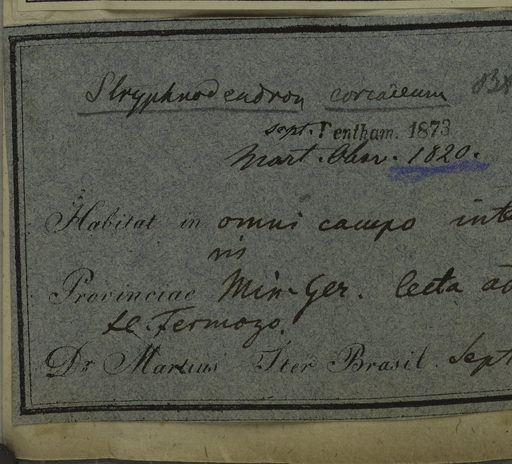 Stryphnodendron coriaceum
sept. Bentham. 1873
Mart. Obsr. 1820.
Habitat in omni campo inte
ris
Provinciae Min. Ger. lecta ad
Fermozo.
Dr Martius Iter Brasil. Sept